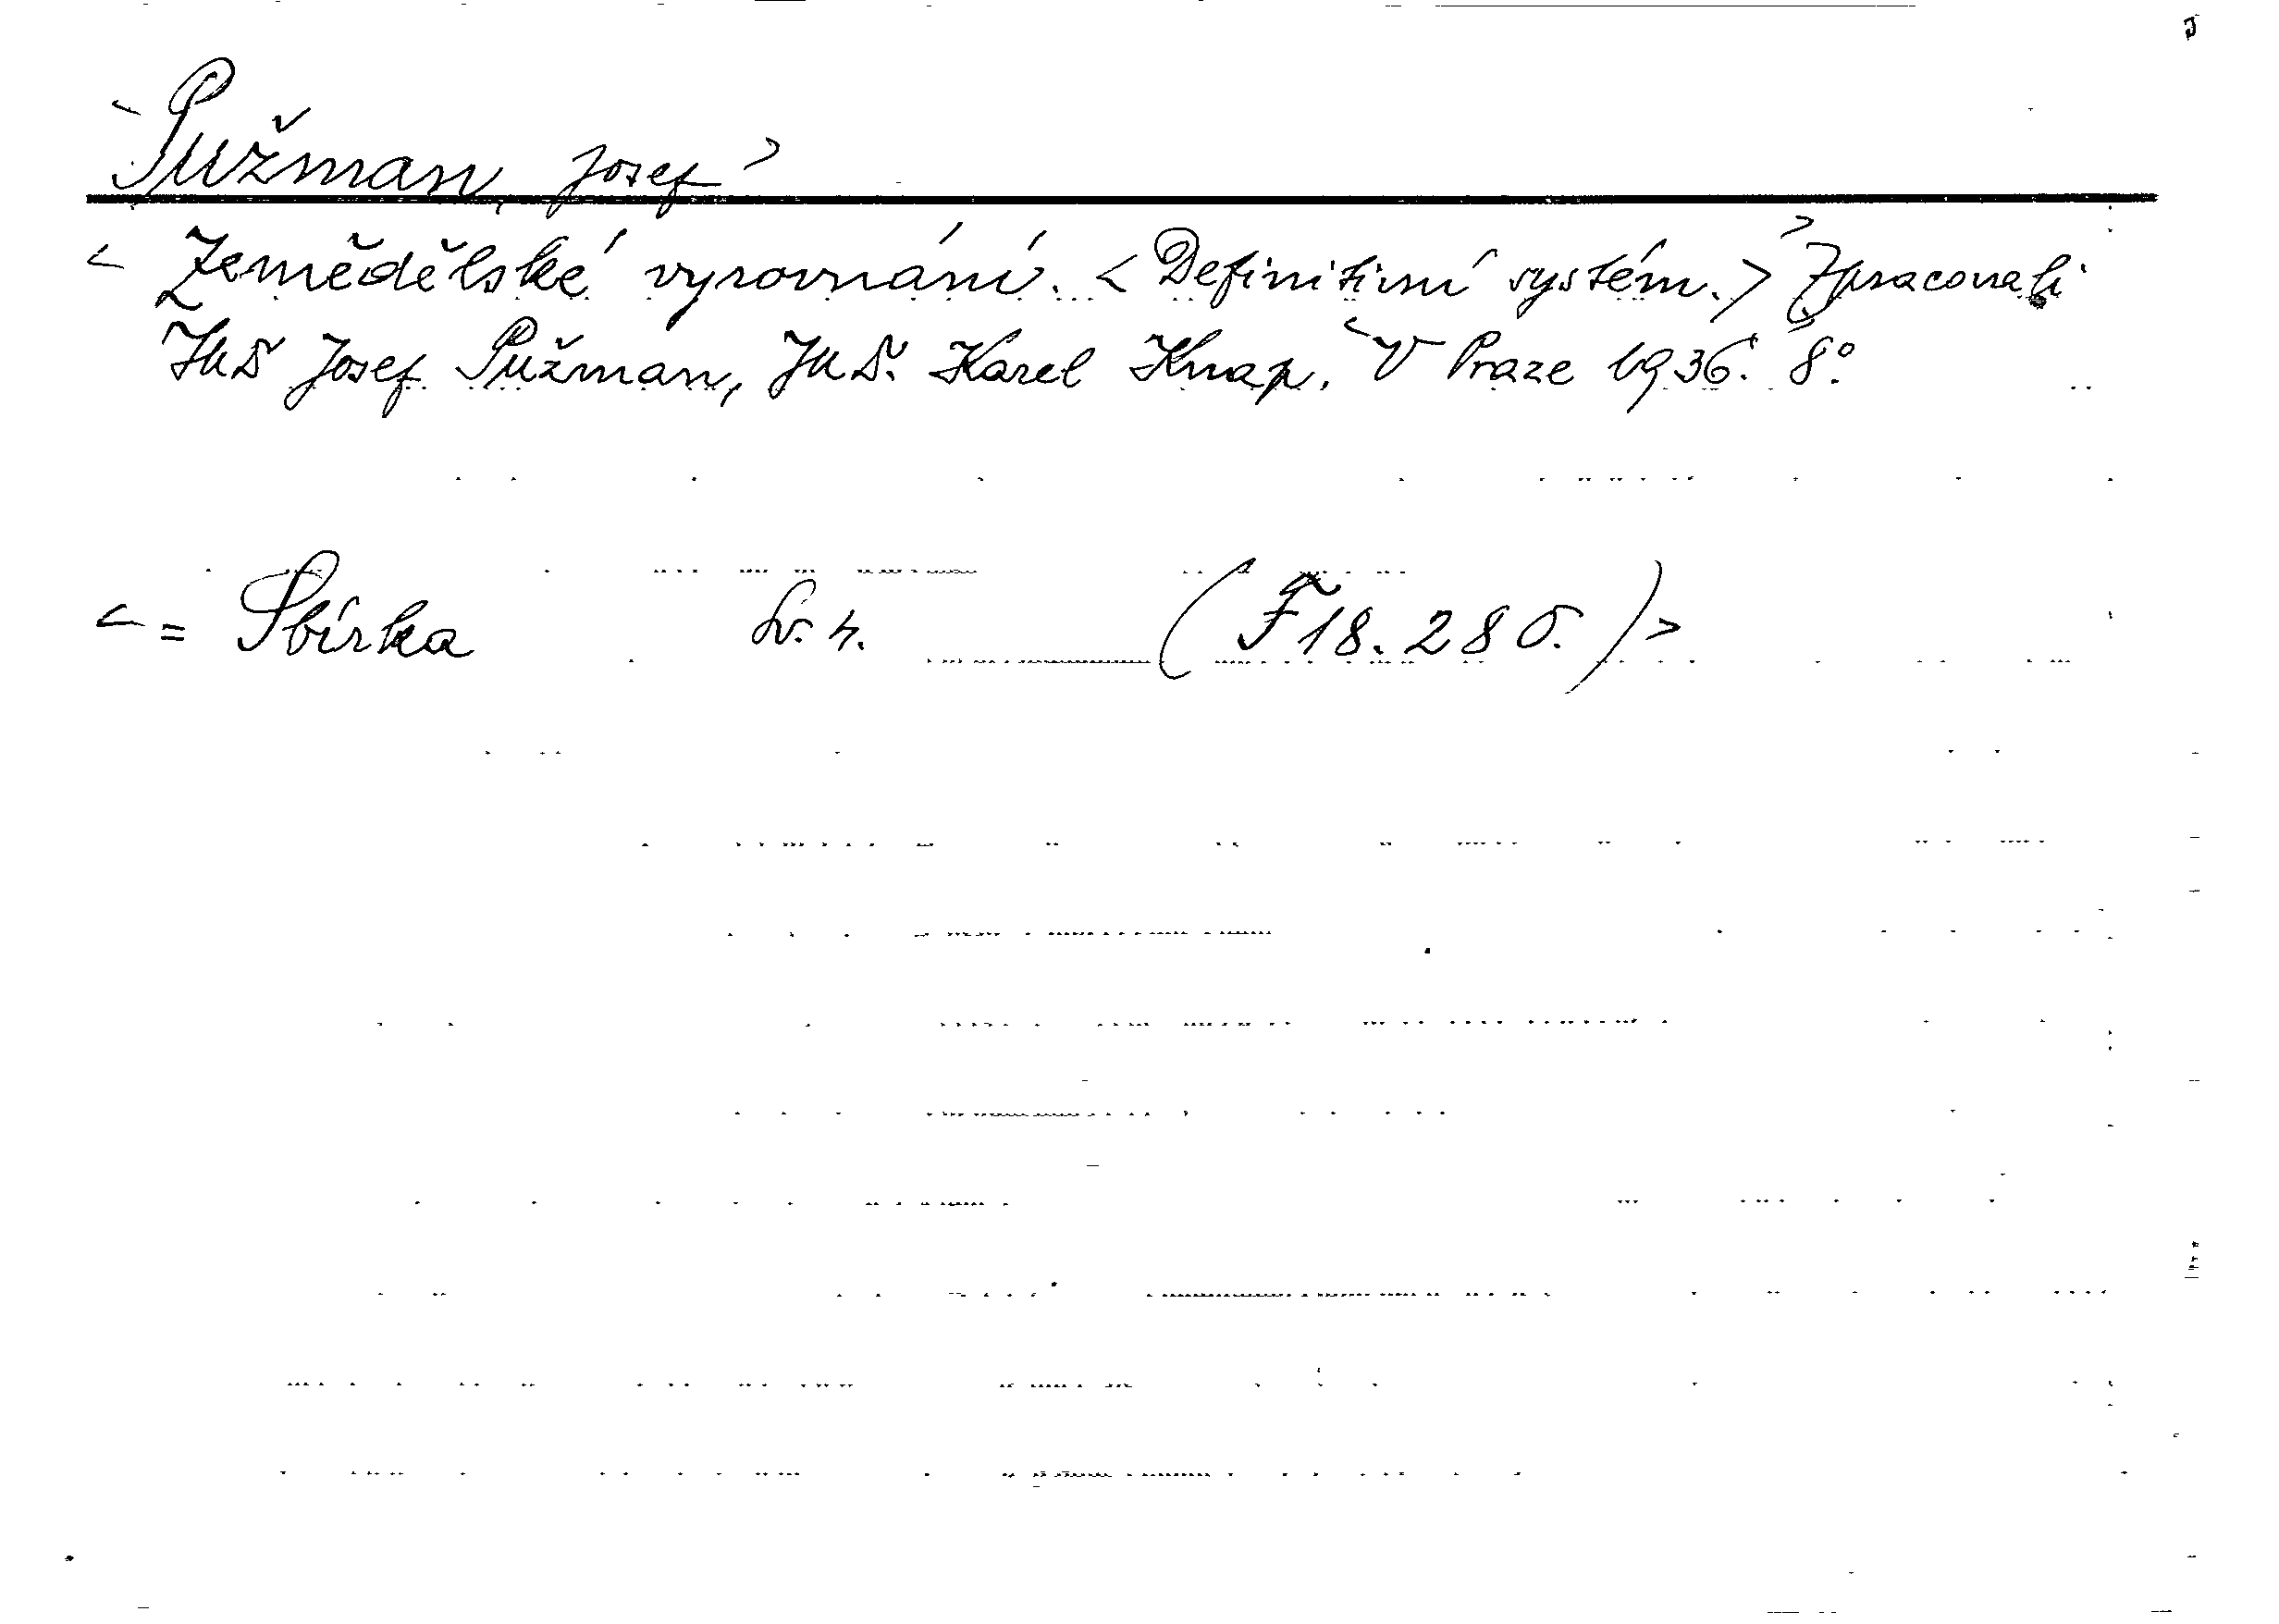 <Pužman, Josef>
<Zemědělské vyrovnání. <Definitivní systém.>> Zpracovali
JUD Josef Pužman, JUD. Karel Knap. <V Praze 1936. 8°.
<= Sbírka sv. 4. (F 18.280.)>